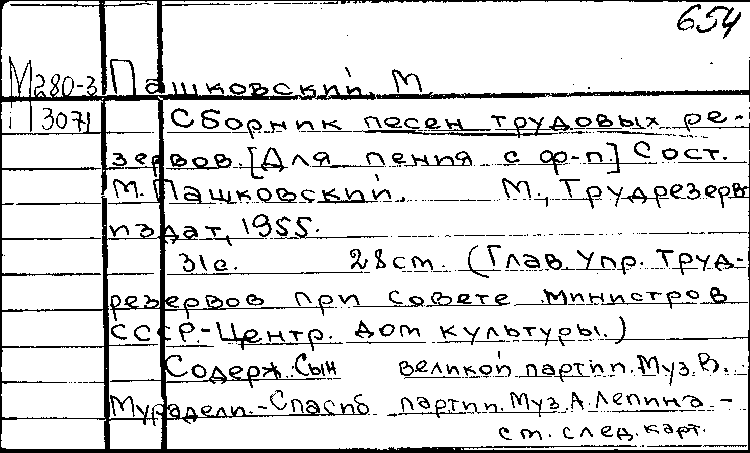 654
М280-3 Пашковский, М.
П 3071 Сборник песен трудовых ре-
зервов. [Для пения с ф-п.] Сост.
М. Пашковский. М., Трудрезерв
издат, 1955.
31с. 28см. (Глав. Упр. Труд-
резервов при Совете министров
СССР.-Центр. дом культуры.)
Содерж. Сын великой партии. Муз. В.
Мурадели.-Спасиб партии. Муз. А. Лепина.-
см. след. карт.